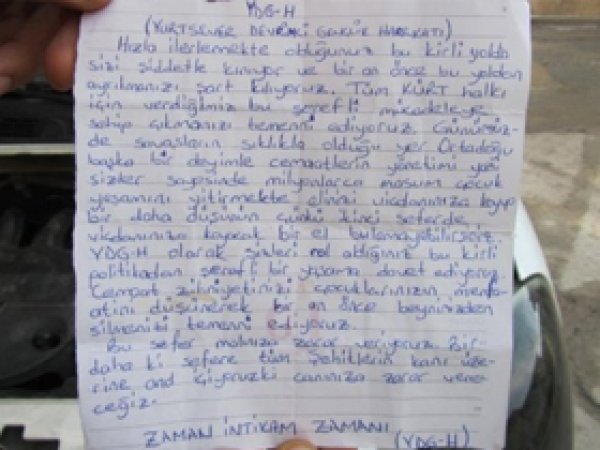 YDG-H
(YURTSEVER DEVRİMCİ GENÇLİK HAREKATI)
Hızla ilerlemekte olduğunuz bu kirli yolda
sizi şiddetle kınıyor ve bir an önce bu yoldan
ayrılmanızı şart ediyoruz. Tüm KÜRT halkı
için verdiğimiz bu şerefli mücadeleye
sahip çıkmanızı temenni ediyoruz. Günümüz-
de savaşların sıklıkla olduğu yer Ortadoğu
başka bir deyimle cemaatlerin yönetimi yani
sizler sayesinde milyonlarca masum çocuk
yaşamını yitirmekte elinizi vicdanınıza koyup
bir daha düşünün çünkü ikinci seferde
vicdanınıza koyacak bir el bulamayabilirsiniz
YDG-H olarak sizleri rol aldığınız bu kirli
politikadan şerefli bir yaşama davet ediyoruz
Cemaat zihniyetinizi çocuklarınızın menfa-
atini düşünerek bir an önce beyninizden
silmenizi temenni ediyoruz.
Bu sefer malınıza zarar veriyoruz. Bir
daha ki sefere tüm Şehitlerin kanı üze-
rine and içiyoruzki canınıza zarar vere-
ceğiz.
ZAMAN İNTİKAM ZAMANI
(YDG-H)